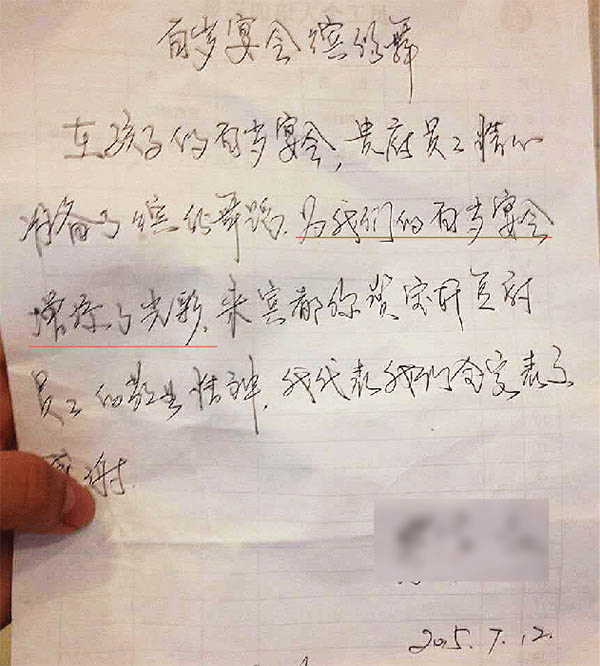 百岁宴会缤纷舞
在孩子的百岁宴会,贵府员工精心
准备了缤纷舞蹈,为我们的百岁宴会
增添了光彩,来宾都称赞府
员工的敬业精神,我代表我们全家表示
感谢.
2015.7.12.